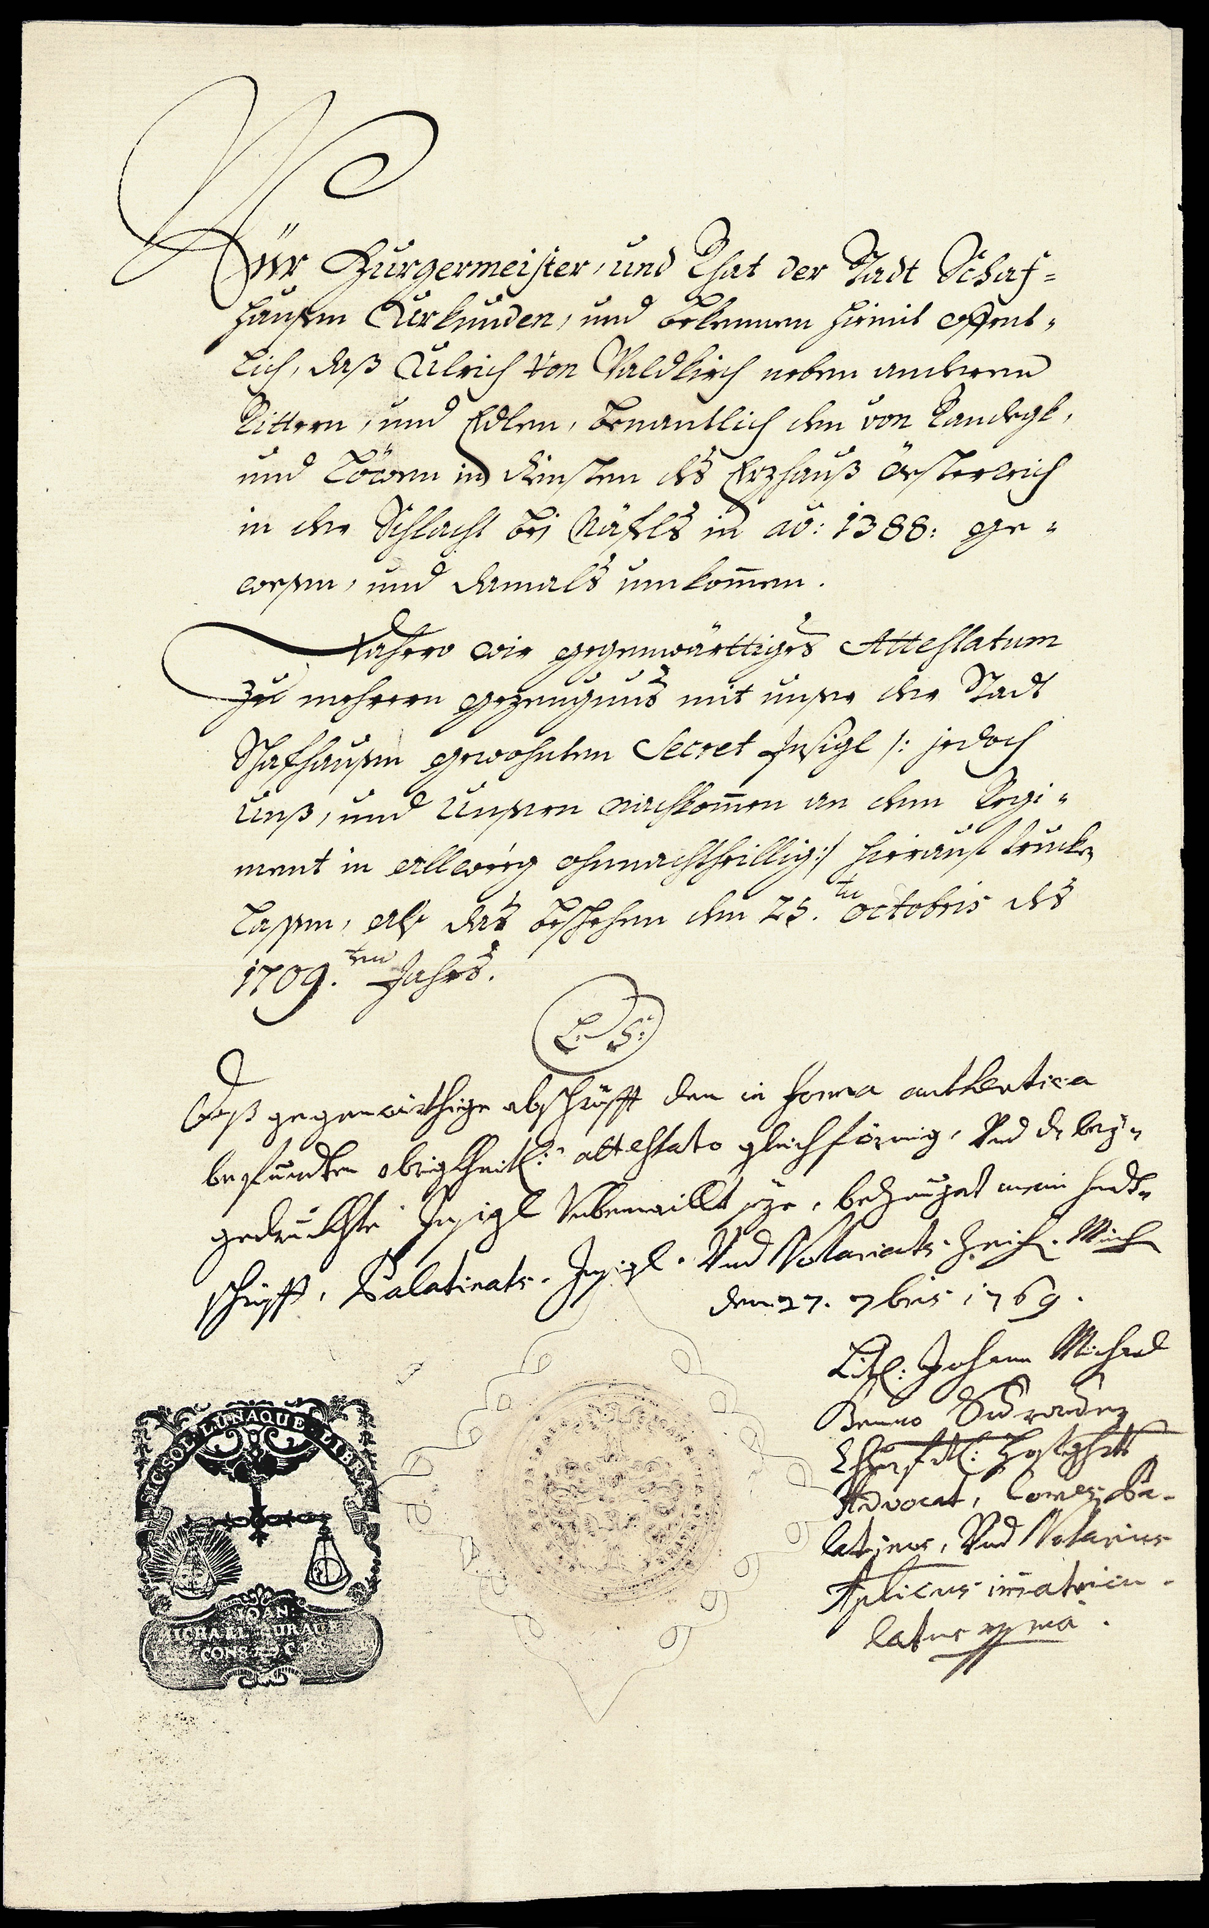 Wür Burgermeister, und Rhat der Stadt Schaf=
haußen Urkunden, und bekennen hiemit offent=
lich, daß Ulrich von Waldkirch neben anderen
Rittern, und Edlen, benantlich den von Randegk,
und Löwen in diensten des Erzhauß össterreich
in der Schlacht bei Näfels in aō: 1388: ge=
weßen, und damals umkom̄en.
dahero wir gegenwärttiges Attestatum
zu mehrern gezeugnus mit unßer der Stadt
Schafhaußen gewohnten Secret Insigl /: jedoch
Unß, und Unßern nachkom̄en an dem Regi=
ment in allweeg ohnnachtheillig:/ hierauf trucken
laßen, als das beschehen den 25.ten octobris des
1709.ten Jahrs.
L: S:
Daß gegenwärthige abschrüfft dem in forma authentica
befundten obrigkheitl: attestato gleichförmig, Und d. bey=
gedruckhte Insigl seye, bezeuget mein handt=
schrüfft, Palatinats-Insigl, Und Notariats-Zeich.
den 27. 7bris 1769.
Lit: Johann Michael
Benno
Advocat, Comes Pa=
latinus, Und Notarius
Aplicus im̄atricu=
latus mpria.
SIC SOL LUNAQUE LIBR
IOAN
MICHAEL
CONS